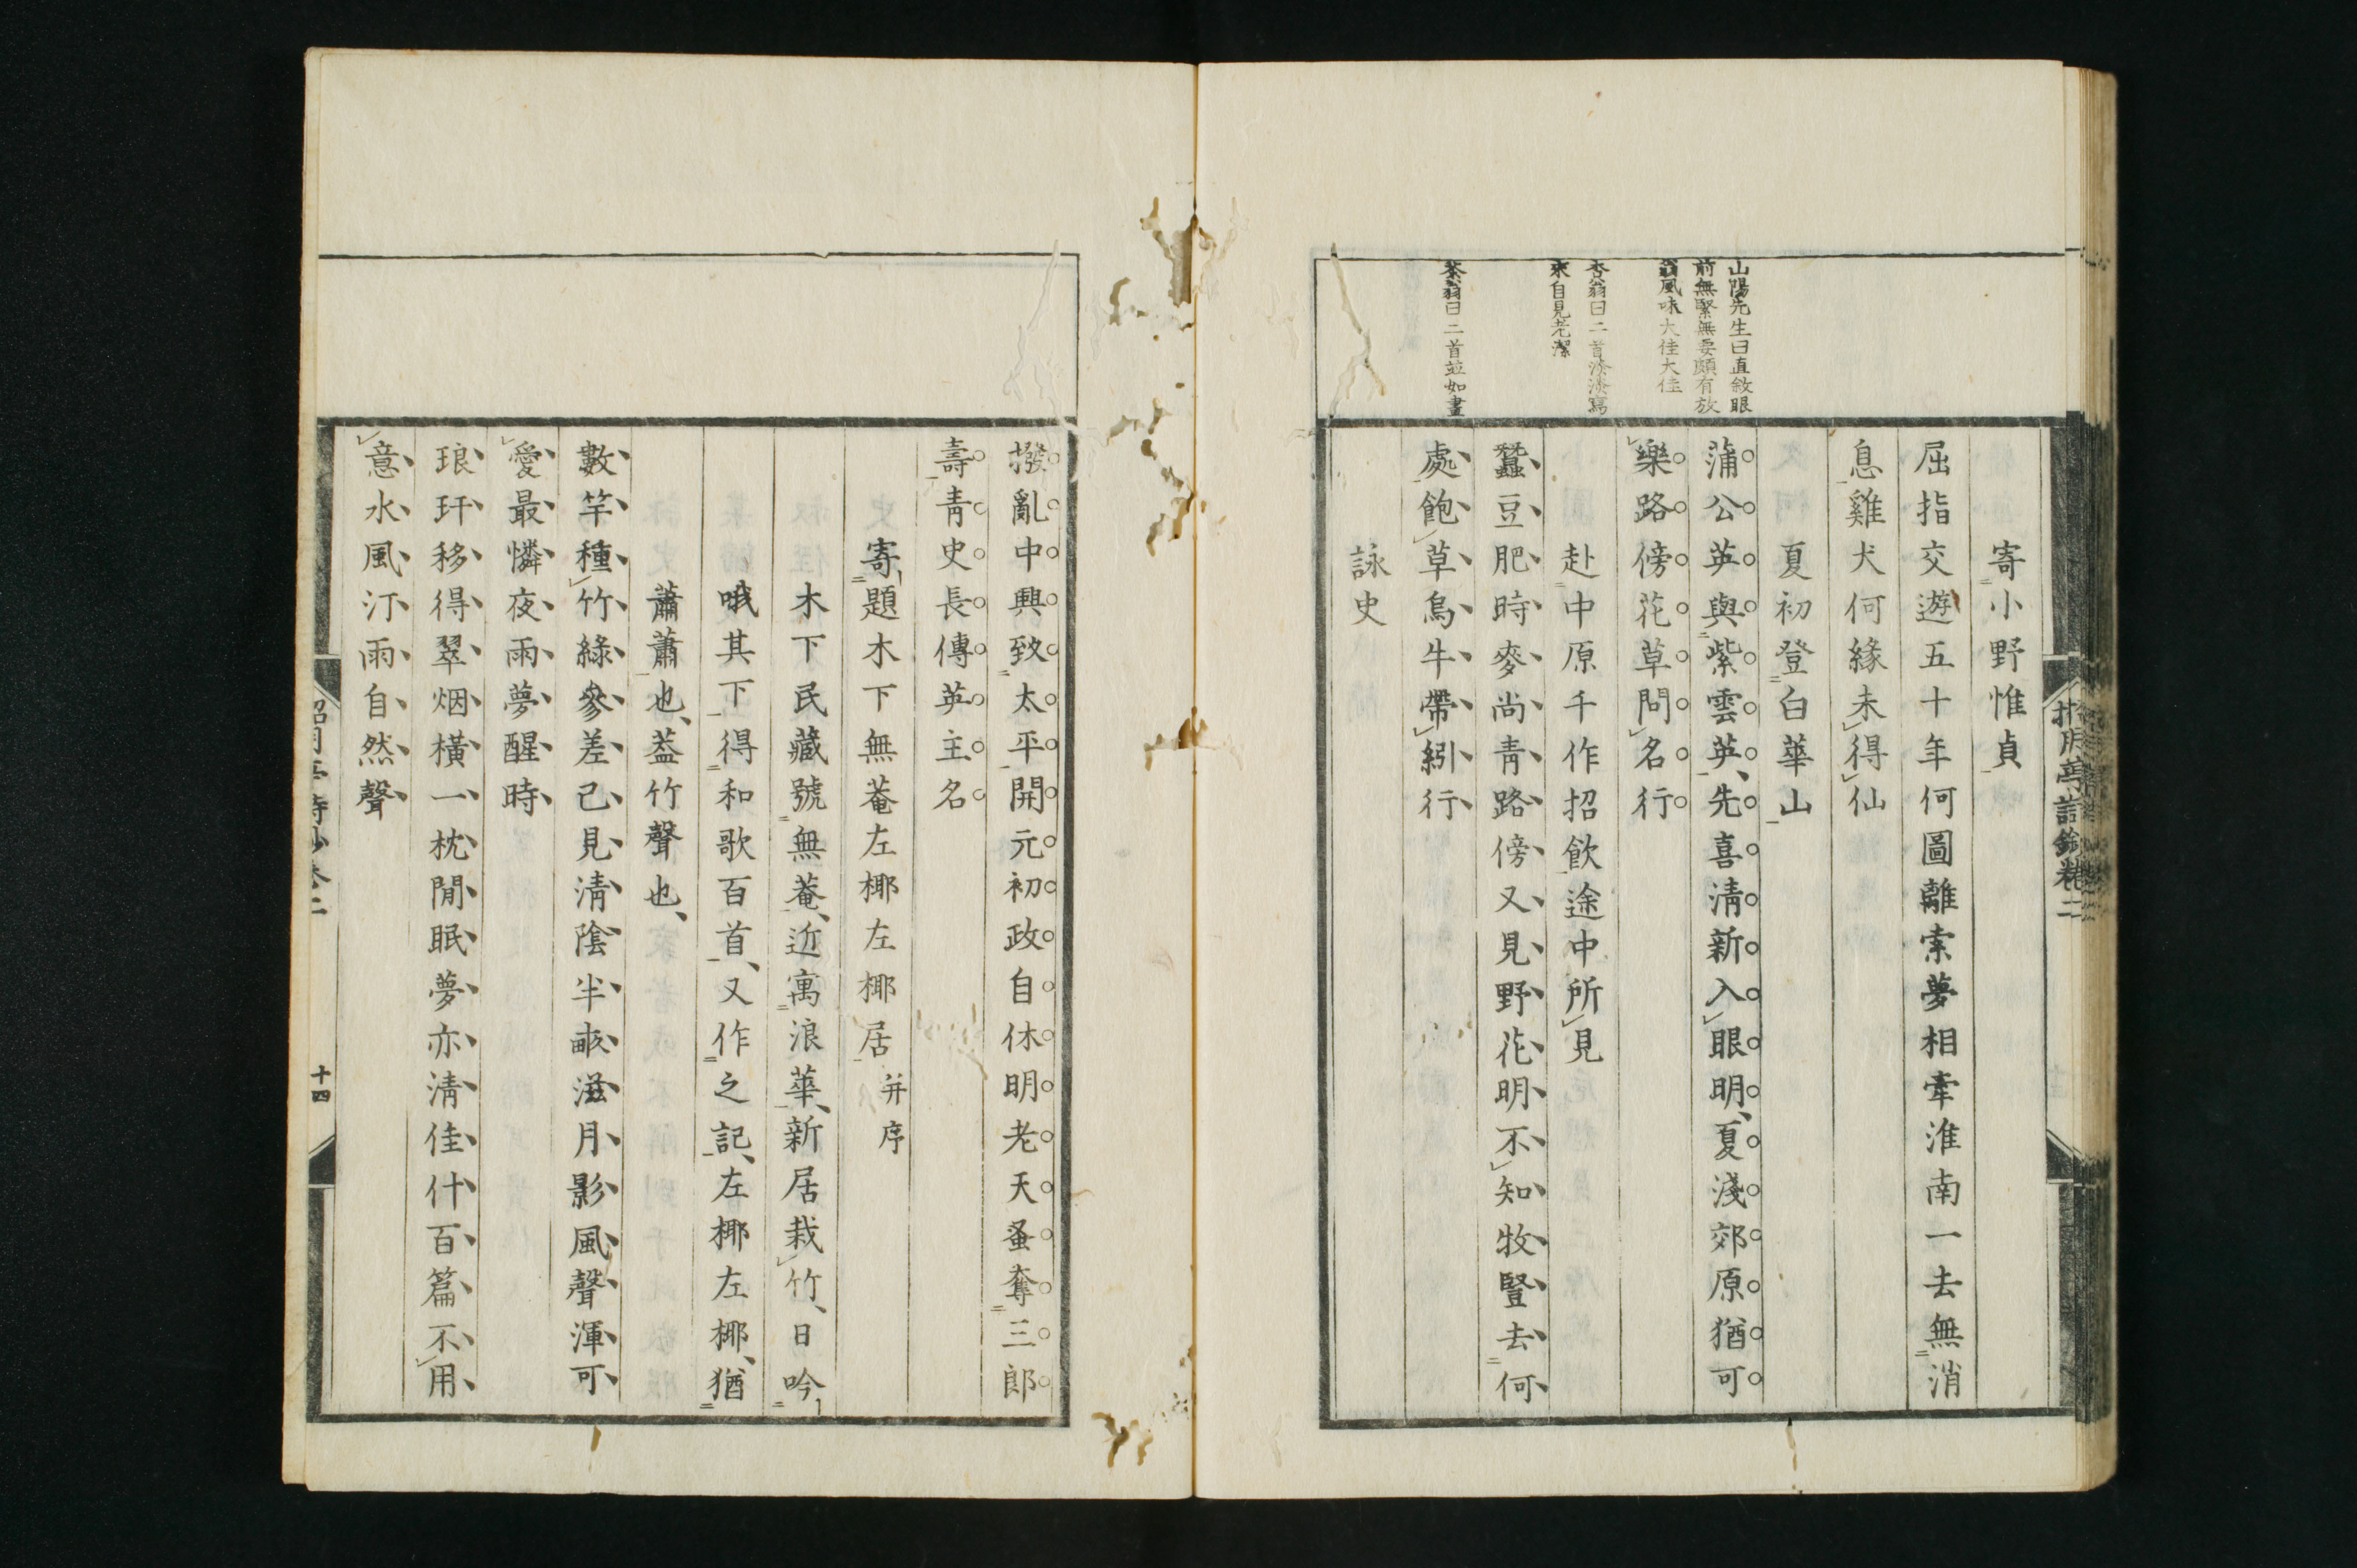 山陽先生曰直敘眼
前無緊無要頗有放
翁風味大佳大佳
杏翁曰二首淡淡寫
來自見老潔
茶翁曰二首並如畫
寄小野惟貞
屈指交遊五十年何圖離索夢相牽淮南一去無消
息雞犬何緣未得仙
夏初登白華山
蒲公英與紫雲英、先喜清新入眼明、夏淺郊原猶可
樂路傍花草問名行
赴中原千作招飲途中所見
蠶豆肥時麥尚青路傍又見野花明不知牧豎去何
處飽草烏牛帶紖行
詠史
撥亂中興致太平開元初政自休明老天蚤奪三郎
壽青史長傳英主名
寄題木下無菴左椰左椰居 并序
木下民藏號無菴、近寓浪華、新居栽竹、日吟
哦其下得和歌百首、又作之記、左椰左椰、猶
蕭蕭也、蓋竹聲也、
數竿種竹綠參差已見清陰半畝滋月影風聲渾可
愛最憐夜雨夢醒時
琅玕移得翠烟橫一枕閒眠夢亦清佳什百篇不用
意水風汀雨自然聲
十四